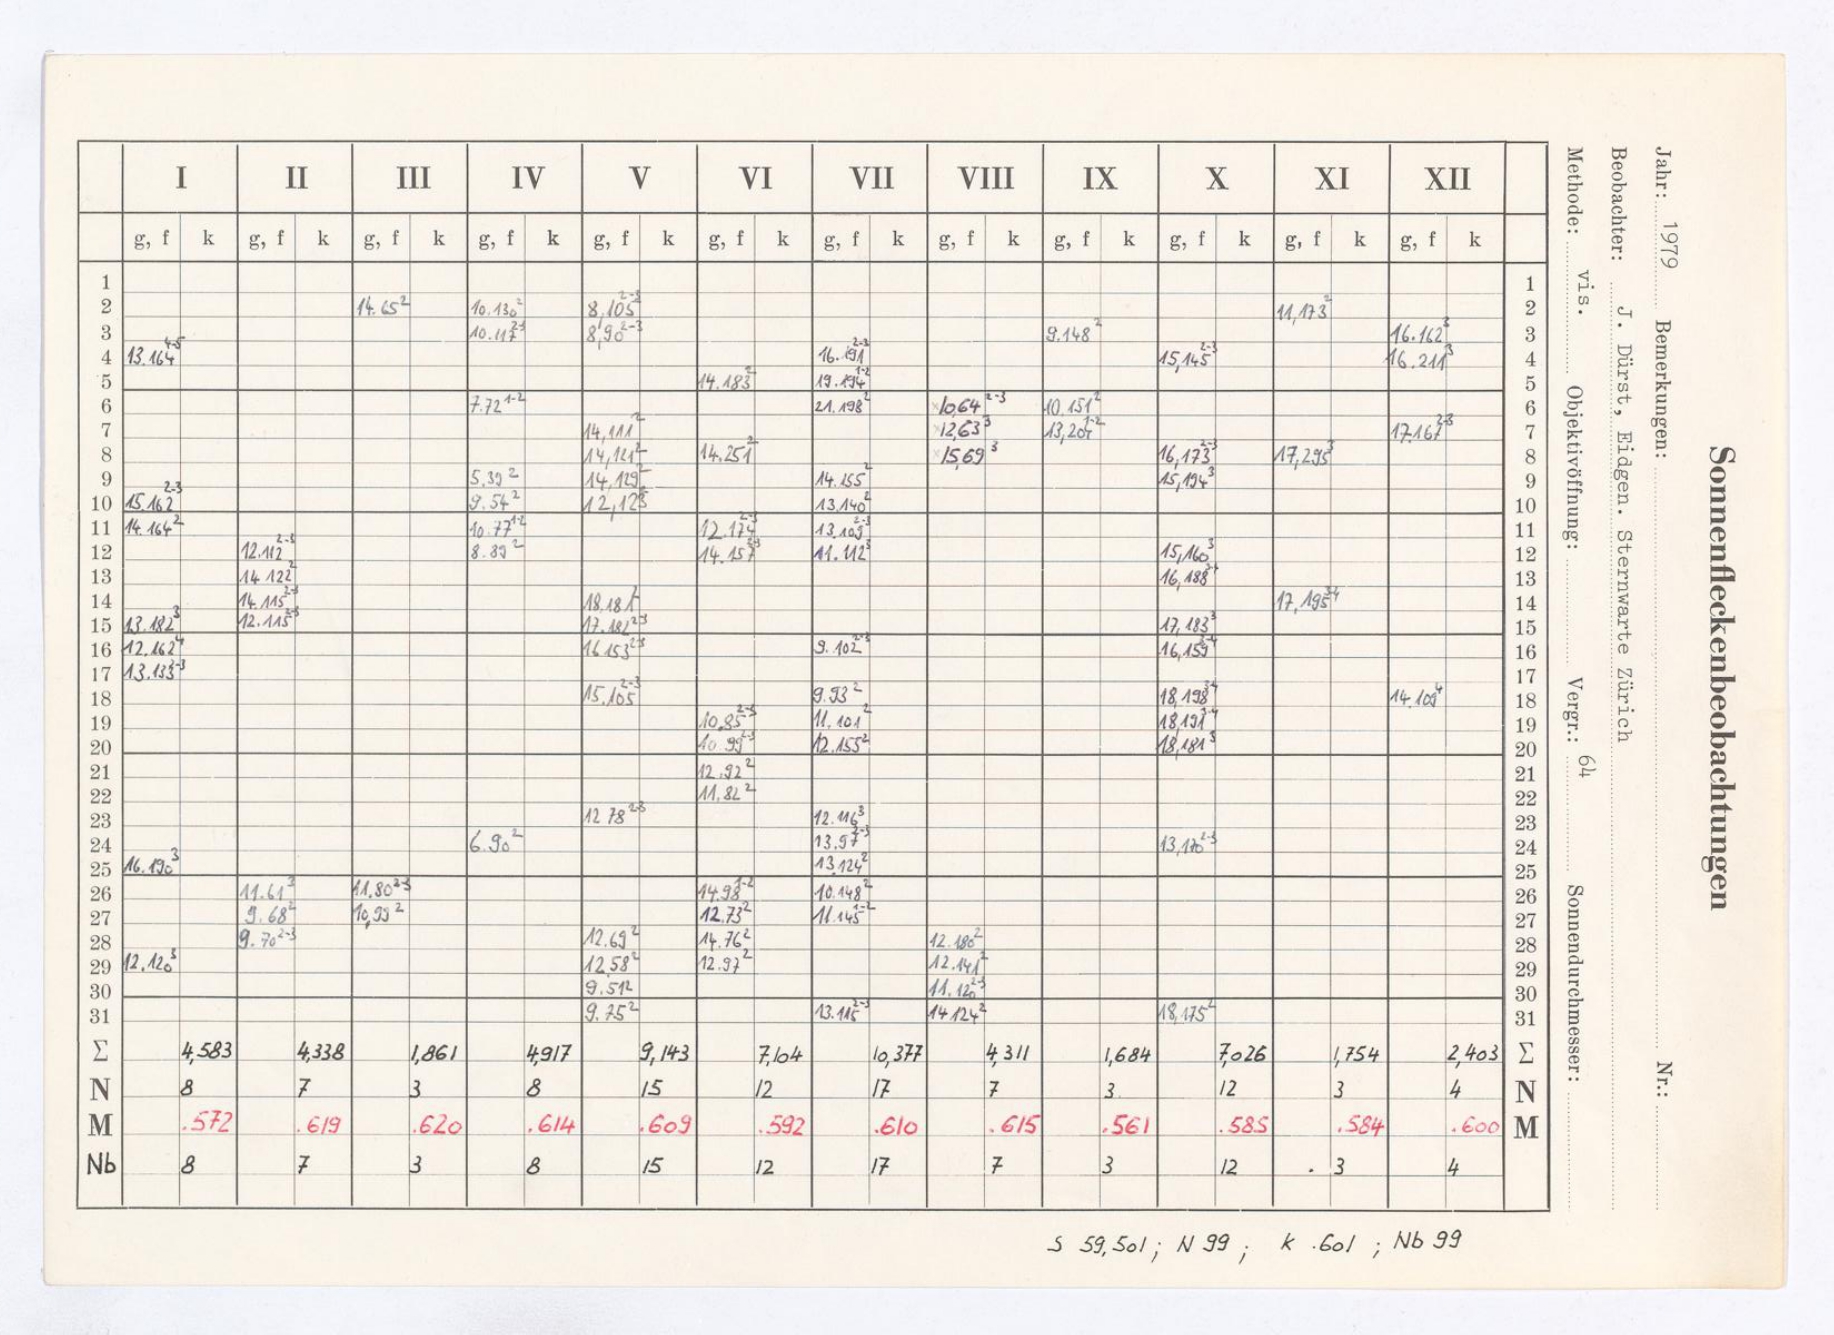 Sonnenfleckenbeobachtungen
Jahr: 1979 Bemerkungen: Nr.:
Beobachter: J. Dürst, Eidgen. Sternwarte Zürich
Methode: vis. Objektivöffnung: Vergr.: 64 Sonnendurchmesser:
I II III IV V VI VII VIII IX X XI XII
g, f k g, f k g, f k g, f k g, f k g, f k g, f k g, f k g, f k g, f k g, f k g, f k
1 1
2 14.65² 10.130² 8,105²⁻³ 11,173² 2
3 10.117²⁻³ 8,90²⁻³ 9.148² 16.162³ 3
4 13.164⁴⁻⁵ 16.191²⁻³ 15,145²⁻³ 16.211³ 4
5 14.183² 19.194¹⁻² 5
6 7.72¹⁻² 21.198² 10,64²⁻³ 10.151² 6
7 14,111² 12,63³ 13,201¹⁻² 17.167²⁻³ 7
8 14,121² 14.251² 15,69³ 16,173²⁻³ 17,295³ 8
9 5.39² 14,129² 14.155² 15,194³ 9
10 15.162²⁻³ 9.54² 12,125 13.140² 10
11 14.164² 10.77¹⁻² 12.174²⁻³ 13.109²⁻³ 11
12 12.112²⁻³ 8.89² 14.157²⁻³ 11.112³ 15,160³ 12
13 14.122² 16,188 13
14 14.115²⁻³ 18.181² 17,195³⁻⁴ 14
15 13.182³ 12.115²⁻³ 17.182²⁻³ 17,183³ 15
16 12.162⁴ 16.153²⁻³ 9.102²⁻³ 16,159³⁻⁴ 16
17 13.133²⁻³ 17
18 15.105²⁻³ 9.93² 18,198³⁻⁴ 14.109⁴ 18
19 10.85²⁻³ 11.101² 18,191³⁻⁴ 19
20 10.99²⁻³ 12.155² 18,181³ 20
21 12.92² 21
22 11.82² 22
23 12 78²⁻³ 12.116³ 23
24 6.90² 13.97²⁻³ 13,170²⁻³ 24
25 16.190³ 13.124² 25
26 11.61³ 11.80²⁻³ 14.98¹⁻² 10.148² 26
27 9.68² 10,99² 12.73² 11.145¹⁻² 27
28 9.70²⁻³ 12.69² 14.76² 12.180² 28
29 12.120³ 12.58² 12.97² 12.141² 29
30 9.51² 11.120²⁻³ 30
31 9.75² 13.115²⁻³ 14.124² 18,175² 31
Σ 4,583 4,338 1,861 4,917 9,143 7,104 10,377 4,311 1,684 7,026 1,754 2,403 Σ
N 8 7 3 8 15 12 17 7 3 12 3 4 N
M .572 .619 .620 .614 .609 .592 .610 .615 .561 .585 .584 .600 M
Nb 8 7 3 8 15 12 17 7 3 12 . 3 4
S 59,501 ; N 99 ; K .601 ; Nb 99